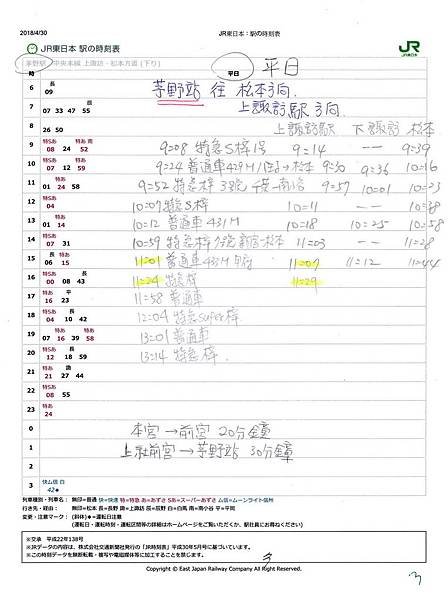 2018/4/30 JR東日本：駅の時刻表
JR東日本 駅の時刻表 JR JR東日本
茅野駅 中央本線 上諏訪・松本方面 (下り)
時 平日 平日
6 長 09 茅野站 往 松本方向
7 辰 07 33 47 55 上諏訪駅 方向
8 26 50 上諏訪駅 下諏訪 松本
9 特Sあ 特あ 南 08 24 52 9:08 特急S梓1号 9:14 -- 9:39
10 特Sあ 特あ 07 12 59 9:24 普通車429M 9:30 9:36 10:16
11 特あ 長 01 24 58 9:52 特急梓 3号 千葉→南小谷 9:57 10:01 10:23
12 特Sあ 04 10:07 特急S梓 10:11 -- 10:38
13 特あ 01 14 10:12 普通車 431M 10:18 10:25 10:58
14 特Sあ 07 31 10:59 特急梓 新宿→松本 11:03 -- 11:28
15 長 特あ 06 15 11:01 普通車 433M 11:07 11:12 11:44
16 特Sあ 長 00 08 43 11:24 特急梓 11:29
17 平 16 23 11:58 普通車
18 特Sあ 長 04 10 42 12:04 特急super梓
19 特あ 特あ 07 16 39 58 13:01 普通車
20 特Sあ 長 12 18 59 13:14 特急梓
21 特あ 諏 21 27 44
22 特Sあ 08 55
23 特あ 24
0 本宮→前宮 20分鐘
1 上社前宮→茅野站 30分鐘
2
3 快ム信 白 42◆
列車種別・列車名： 無印=普通 快=快速 特=特急 あ=あずさ Sあ=スーパーあずさ ム信=ムーンライト信州
行き先・経由： 無印=松本 長=長野 諏=上諏訪 辰=辰野 白=白馬 南=南小谷 平=平岡
変更・注意マーク： (斜体)◆=運転日注意
(運転日・運転時刻・運転区間等の詳細はホームページをご覧いただくか、駅社員にお尋ねください)
※交承 平成22年138号
※JRデータの内容は、株式会社交通新聞社発行の「JR時刻表」平成30年5月号に基づいています。
※この時刻データを無断転載・複写や電磁媒体等に加工することを禁じます。
Copyright © East Japan Railway Company All Rights Reserved.
3